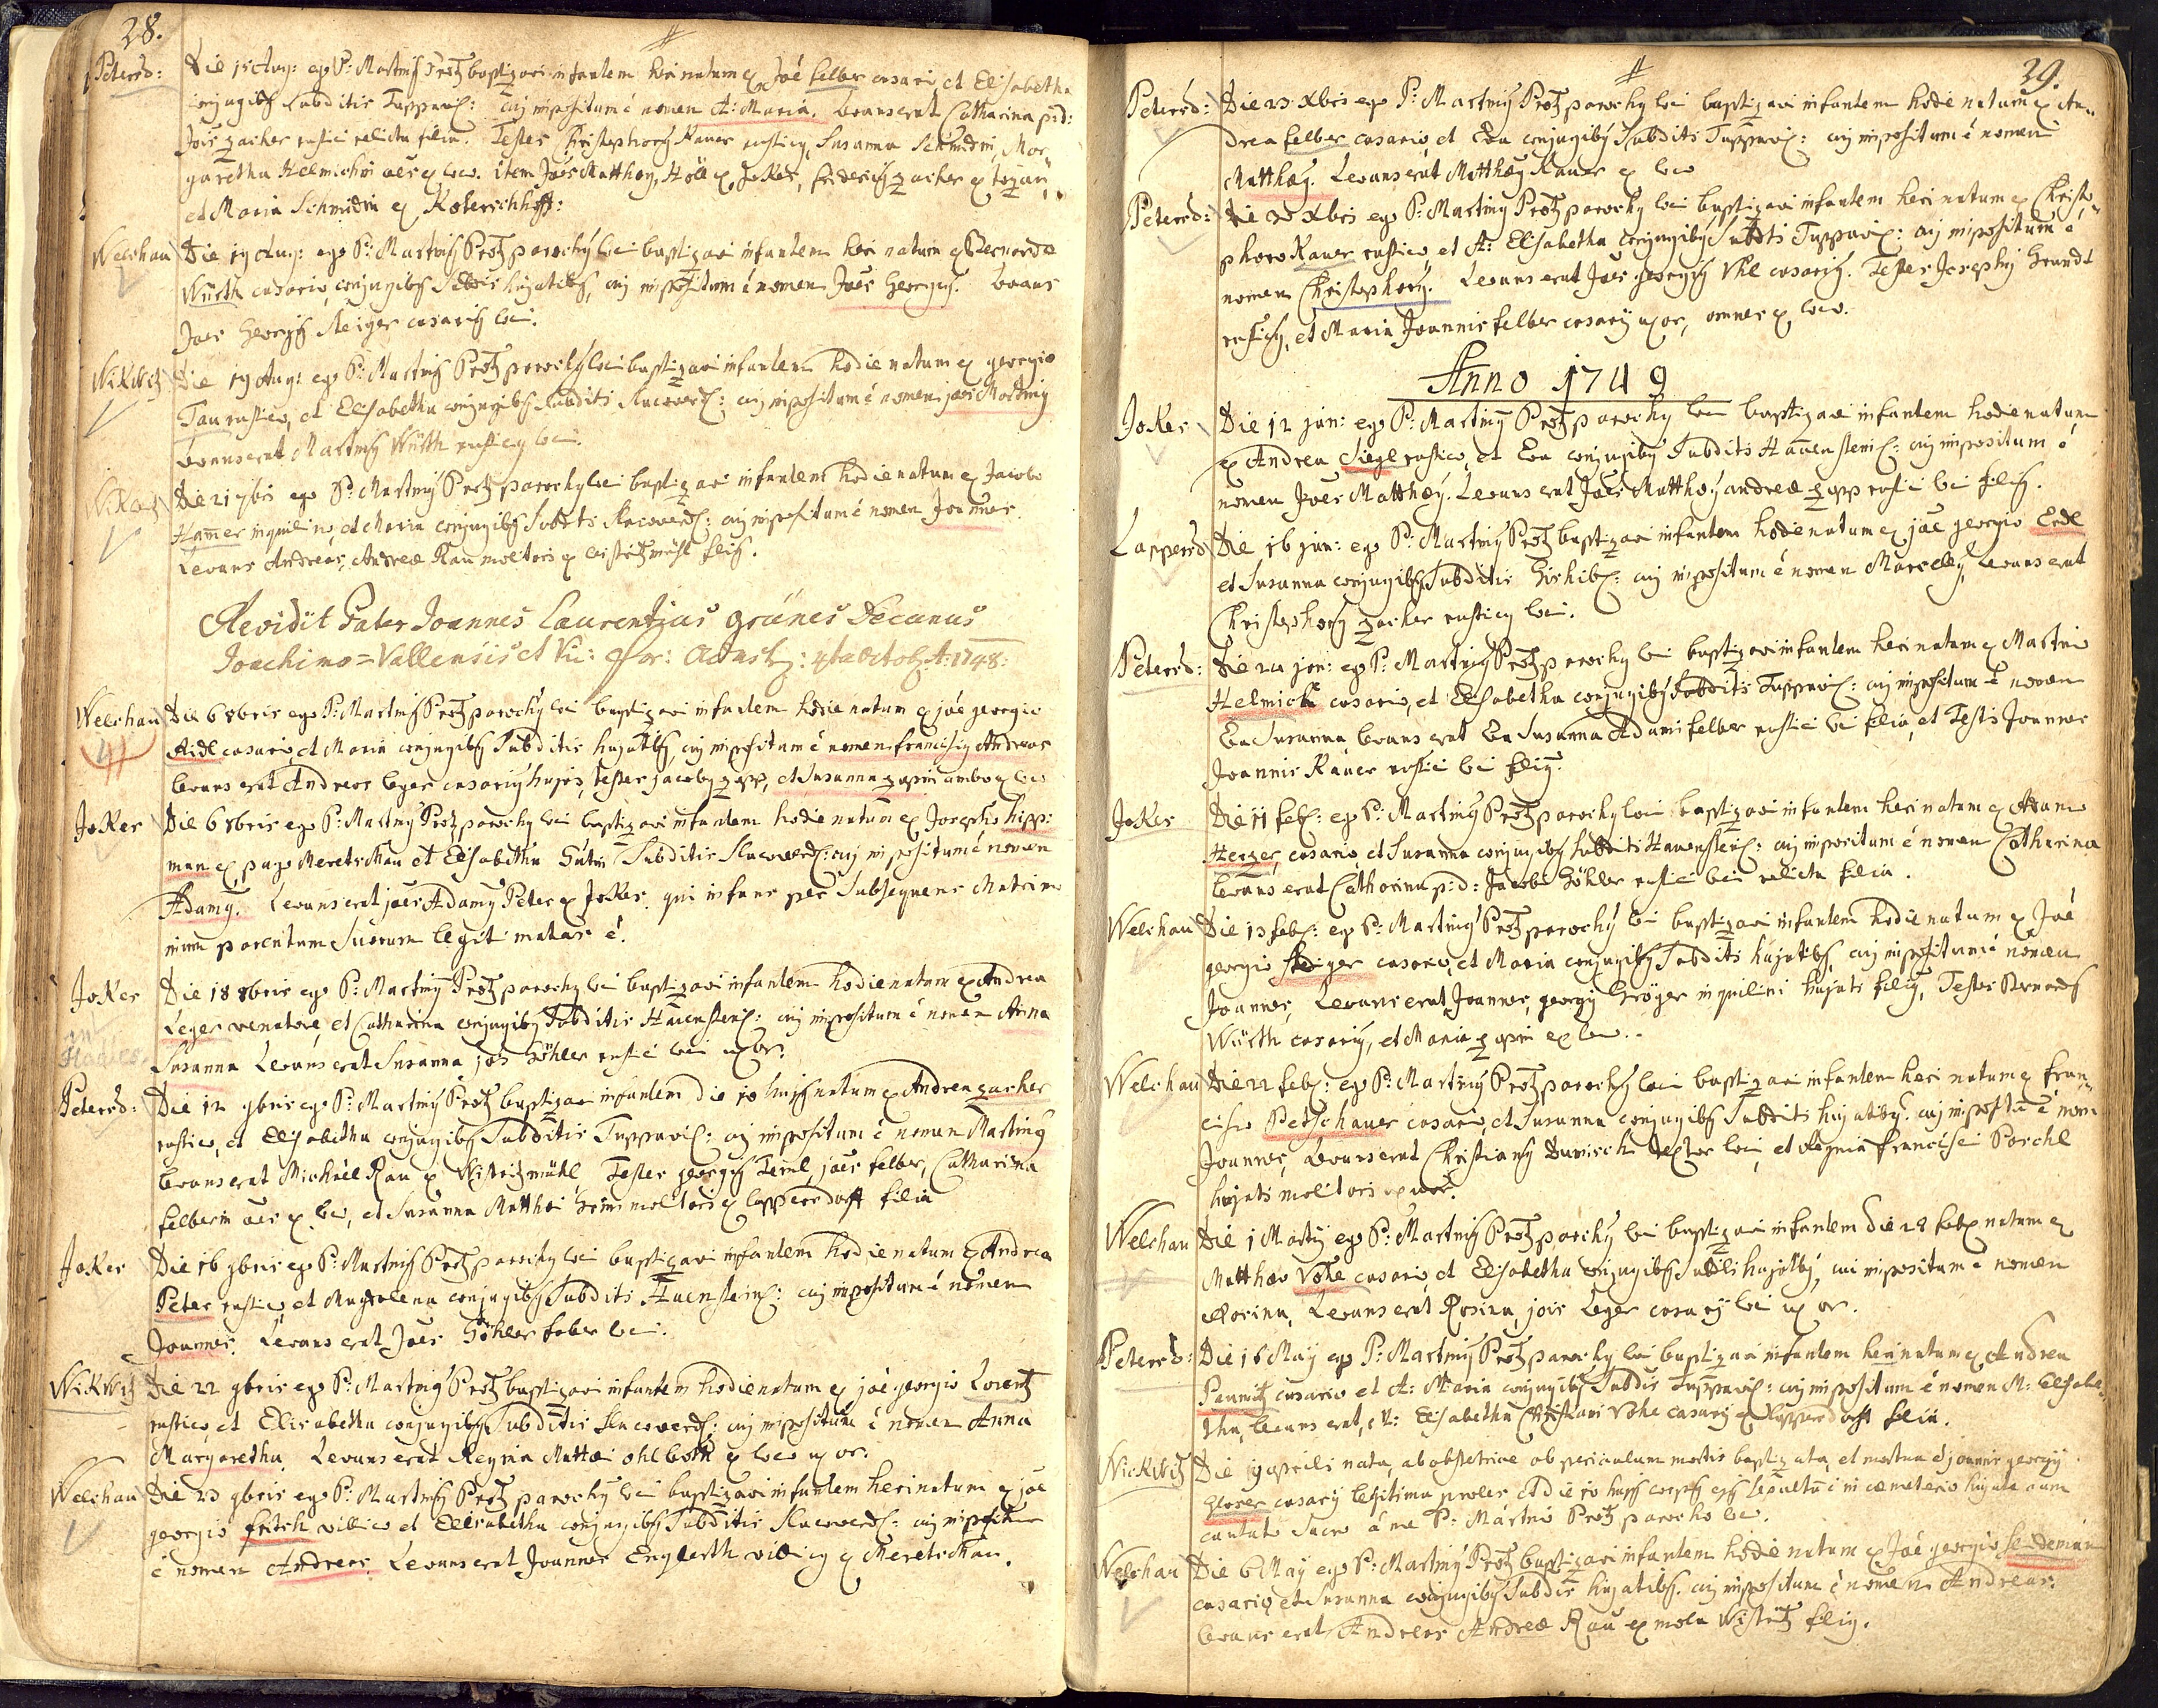 28.
Petersd: Die 15 Aug: ego P: Martinꝰ Protz baptizavi infantem heri natum ex Joē felber casario, et Elisabetha
conjugibꝰ Subditis Tuppavi: cuj impositum ē nomen A: Maria. Levans erat Catharina p:d:
Jois zacher rustici relicta filia. Testes Christophorꝰ Kauer rusticꝰ, Susanna Schmidin, Mar
garetha Helmichin oēs ex loco. item Joēs Matthæꝰ, ex JoKes, fridericꝰ zacher ex
et Maria Schmidin ex
Welchau Die 19 Aug: ego P: Martinꝰ Protz parochꝰ loci baptizavi infantem heri natum ex Bernardo
Würth casario, conjugibꝰ Subdis hujatibꝰ, cuj impositum ē nomen Joēs Georgiꝰ. Levans
Joēs Georgiꝰ Steiger casariꝰ loci.
WiKwitz Die 19 Aug: ego P: Martinꝰ Protz parochꝰ loci baptizavi infantem hodie natum ex georgio
Tau rustico, et Elisabetha conjugibꝰ Subditis cuj impositum ē nomen joēs Martinꝰ
Levans erat Martinꝰ Würth rusticꝰ loci.
Wikwitz Die 21 7bris ego P: Martinꝰ Protz parochꝰ loci baptizavi infantem hodie natum ex Jacobo
Ham̄er inquilino, et Maria conjugibꝰ Subdits cuj impositum ē nomen Joannes
Levans Andreas, Andreæ Rau molitoris ex filiꝰ.
Revidit Pater Joannes Laurentius Grünes Decanus
Joachimo=Vallensis et 4ta Octob: A: 1748:
Welchau Die 6 8bris ego P: Martinꝰ Protz parochꝰ loci baptizavi infantem hodie natum ex joē georgio
Aidl casario, et Maria conjugibꝰ Subditis hujatibꝰ, cuj impositum ē nomen franciscꝰ Andreas
levans erat Andreas leger casariꝰ hujas, testes jacobꝰ zapp, et Susanna zapin ambo ex loco
JoKes Die 6 8bris ego P: Martinꝰ Protz parochꝰ loci baptizavi infantem hodie natum ex Josepho hipp:
man ex pago Meretschau et Elisabetha Gütin Subditis cuj impositum ē nomen
Adamꝰ. Levans erat joēs Adamꝰ Peter ex JoKes. qui infans per Subsequens Matrimo
nium parentum Suorum legitimatus ē.
JoKes Die 18 8bris ego P: Martinꝰ Protz parochꝰ loci baptizavi infantem hodie natum ex Andrea
Leger venatore, et Catharina conjugibꝰ Subditis Hauenstein: cuj impositum ē nomen Anna
Susanna Levans erat Susanna jois Göhler rustici loci uxor.
Petersd: Die 12 9bris ego P: Martinꝰ Protz baptizavi infantem die 10 hujꝰ natum ex Andrea zacher
rustico, et Elisabetha conjugibꝰ Subditis Tuppavi: cuj impositum ē nomen Martinꝰ
levans erat Michäel Rau ex Wistritzmühl, Testes georgiꝰ Teml, joēs felber, Catharina
felberin oēs ex loco, et Susanna Matthæi molitoris ex lappersdorff filia
JoKes Die 16 9bris ego P: Martinꝰ Protz parochꝰ loci baptizavi infantem hodie natum ex Andrea
Peter rustico, et Magdalena conjugibꝰ Subdits Hauenstein: cuj impositum ē nomen
Joannes. Levans erat Joēs Göhler faber loci.
WiKwitz Die 22 9bris ego P: Martinꝰ Protz baptizavi infantem hodie natum ex joē georgio Lorentz
rustico, et Elisabetha conjugibꝰ Subditis cuj impositum ē nomen Anna
Margaretha. Levans erat Regina Mattæi ohlboth ex loco uxor.
Welchau Die 23 9bris ego P: Martinꝰ Protz parochꝰ loci baptizavi infantem heri natum ex joē
georgio fritsch villico et Elisabetha conjugibꝰ Subditis cuj impositum
ē nomen Andreas. Levans erat Joannes Englerth villicꝰ ex Meretschau.
29.
Petersd: Die 23 Xbris ego P: Martinꝰ Protz parochꝰ loci baptizavi infantem hodie natum ex An=
drea felber casario, et Eva conjugibꝰ Subdits Tuppavi: cuj impositum ē nomen
Matthæꝰ. Levans erat Matthæꝰ Kauer ex loco
Petersd: Die 30 Xbris ego P: Martinꝰ Protz parochꝰ loci baptizavi infantem heri natum ex Christo=
phoro Kauer rustico, et A: Elisabetha conjugibꝰ Subdts Tuppavi: cuj impositum ē
nomen Christophorꝰ. Levans erat Joēs georgiꝰ Vhl casariꝰ. Testes Josephꝰ Grundt
rusticꝰ, et Maria Joannis felber casarij uxor, omnes ex loco.
Anno 1749
JoKes Die 12 jan: ego P: Martinꝰ Protz parochꝰ loci baptizavi infantem hodie natum
ex Andrea Siegl rustico, et Eva conjugibꝰ Subdits Hauenstein: cuj impositum ē
nomen Joēs Matthæꝰ. Levans erat Joēs Matthæꝰ andreæ zapp rustici loci filiꝰ.
Lappersd Die 16 jan: ego P: Martinꝰ Protz baptizavi infantem hodie natum ex joē georgio Endl
et Susanna conjugibꝰ Subditis cuj impositum ē nomen Marcellꝰ, Levans erat
Christophorꝰ zacher rusticꝰ loci.
Petersd: Die 24 jan: ego P: Martinꝰ Protz parochꝰ loci baptizavi infantem heri natum ex Martino
Helmich casario, et Elisabetha conjugibꝰ Subdits Tuppavi: cuj impositum ē nomen
Eva Susanna, levans erat Eva Susanna Adami felber rustici loci filia, et Testis Joannes
Joannis Kauer rustici loci filiꝰ.
JoKes Die 11 feb: ego P: Martinꝰ Protz parochꝰ loci baptizavi infantem heri natum ex Adamo
Herzer casario, et Susanna conjugibꝰ Subdits Hauenstein: cuj impositum ē nomen Catharina
levans erat Catharina p:d: Jacobi Göhler rustici loci relicta filia.
Welchau Die 13 feb: ego P: Martinꝰ Protz parochꝰ loci baptizavi infantem hodie natum ex Joē
georgio Steiger casario, et Maria conjugibꝰ Subdits hujatibꝰ, cuj impositum ē nomen
Joannes, Levans erat Joannes, georgij Gröger inquilini hujats filiꝰ, Testes Bernardꝰ
Würth casariꝰ, et Maria zapin ex loco.
Welchau Die 22 feb: ego P: Martinꝰ Protz parochꝰ loci baptizavi infantem heri natum ex fran=
cisco Petschauer casario, et Susanna conjugibꝰ Subdits hujatibꝰ. cuj impostū ē nomē
Joannes, Levans erat Christianꝰ textor loci, et Regina francisci Porchl
hujats molitoris uxor.
Welchau Die 1 Martij ego P: Martinꝰ Protz parochꝰ loci baptizavi infantem die 28 feb natum ex
Matthæo Vohe casario, et Elisabetha conjugibꝰ Subdts hujatbꝰ, cui impositum ē nomen
Rosina, Levans erat Rosina, jois leger casarij loci uxor.
Petersd: Die 16 Maij ego P: Martinꝰ Protz parochꝰ loci baptizavi infantem heri natum ex Andrea
casario et A: Maria conjugibꝰ Subdis Tuppavi: cuj impositum ē nomen M: Elisabe=
tha, levans erat, M: Elisabetha Christiani Vohe casarij ex Lappersdorff filia.
Nickwitz Die 19 aprilis nata, ab obstetrice ob periculum mortis baptizata, et mortua ē joannis georgij
Glaser casarij legitima proles et die 20 hujꝰ corpꝰ ejꝰ sepultū ē in cœmeterio hujate cum
cantato Sacro à me P: Martino Protz parocho loci.
Welchau Die 6 Maij ego P: Martinꝰ Protz baptizavi infantem hodie natum ex Joē georgio
casario, et Susanna conjugibꝰ Subdis hujatibꝰ. cuj impositum ē nomen Andreas.
levans erat Andreas Andreæ Rau ex mola Wistritz filiꝰ.